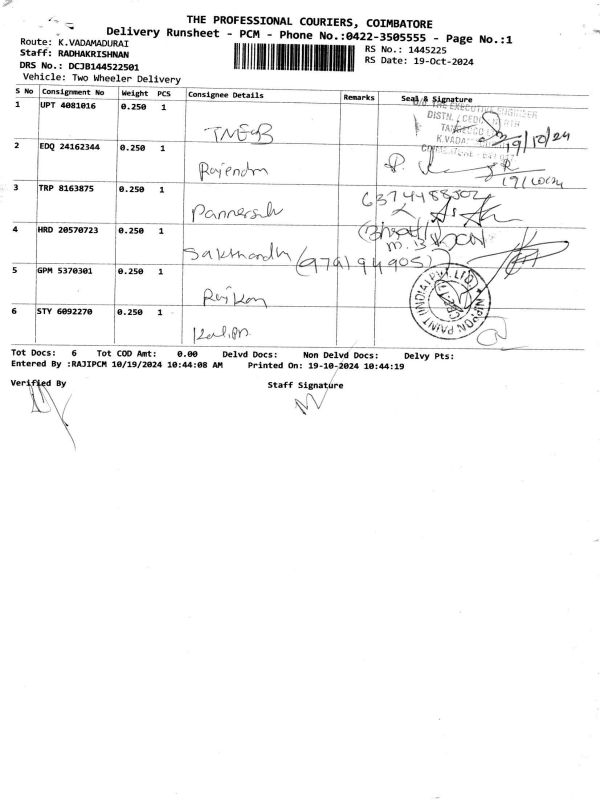 THE PROFESSIONAL COURIERS, COIMBATORE
Delivery Runsheet - PCM - Phone No.:0422-3505555 - Page No.:1
Route: K.VADAMADURAI
RS No.: 1445225
Staff: RADHAKRISHNAN
RS Date: 19-Oct-2024
DRS No.: DCJB144522501
Vehicle: Two Wheeler Delivery
S No Consignment No Weight PCS Consignee Details Remarks Seal & Signature
1 UPT 4081016 0.250 1
TNEB
19/10/24
2 EDQ 24162344 0.250 1
Rajendra
3 TRP 8163875 0.250 1
4 HRD 20570723 0.250 1
5 GPM 5370301 0.250 1
NIPPON PAINT (INDIA) PVT. LTD.
6 STY 6092270 0.250 1
Tot Docs: 6 Tot COD Amt: 0.00 Delvd Docs: Non Delvd Docs: Delvy Pts:
Entered By :RAJIPCM 10/19/2024 10:44:08 AM Printed On: 19-10-2024 10:44:19
Verified By Staff Signature